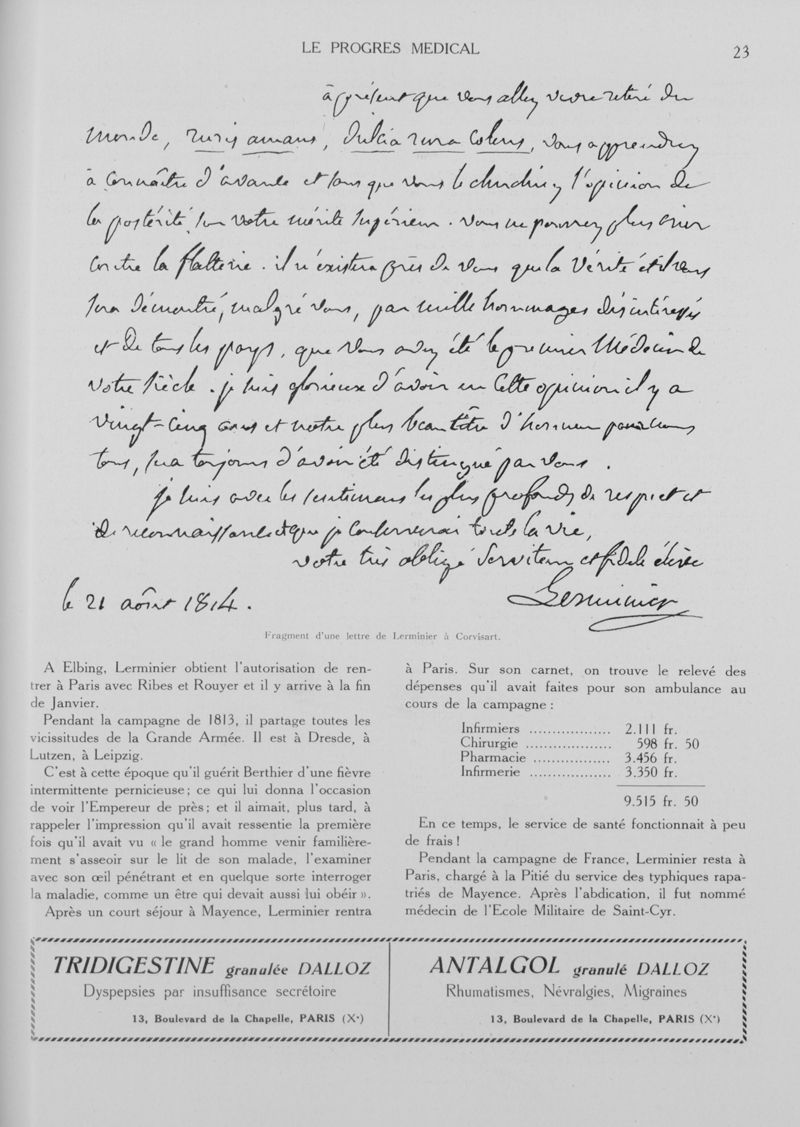 LE PROGRES MEDICAL
23
à présent que vous allez vivre retiré du
monde, ruris amans, dulcia rura colens, vous apprendrez
à connaître d'avance et sans que vous le cherchiez l'opinion de
la postérité sur votre mérite supérieur. vous ne pourrez plus crier
contre la flatterie. il n'existera près de vous que la Vérité et il vous
sera démontré, malgré vous, par mille hommages désintéressés
et de tous les pays, que vous avez été le premier Médecin de
votre siècle. je suis glorieux d'avoir eu cette opinion il y a
vingt-cinq ans et notre plus beau titre d'honneur pour nous
tous, sera toujours d'avoir été distingué par vous.
je suis avec les sentimens les plus profonds de respect et
de reconnaissance que je conserverai toute la vie,
votre très obligé Serviteur et fidèle élève
le 21 août 1814.
Lerminier
Fragment d'une lettre de Lerminier à Corvisart.
A Elbing, Lerminier obtient l'autorisation de ren-
trer à Paris avec Ribes et Rouyer et il y arrive à la fin
de Janvier.
Pendant la campagne de 1813, il partage toutes les
vicissitudes de la Grande Armée. Il est à Dresde, à
Lutzen, à Leipzig.
C'est à cette époque qu'il guérit Berthier d'une fièvre
intermittente pernicieuse ; ce qui lui donna l'occasion
de voir l'Empereur de près ; et il aimait, plus tard, à
rappeler l'impression qu'il avait ressentie la première
fois qu'il avait vu « le grand homme venir familière-
ment s'asseoir sur le lit de son malade, l'examiner
avec son œil pénétrant et en quelque sorte interroger
la maladie, comme un être qui devait aussi lui obéir ».
Après un court séjour à Mayence, Lerminier rentra
à Paris. Sur son carnet, on trouve le relevé des
dépenses qu'il avait faites pour son ambulance au
cours de la campagne :
Infirmiers .................. 2.111 fr.
Chirurgie ................... 598 fr. 50
Pharmacie ................. 3.456 fr.
Infirmerie .................. 3.350 fr.
9.515 fr. 50
En ce temps, le service de santé fonctionnait à peu
de frais !
Pendant la campagne de France, Lerminier resta à
Paris, chargé à la Pitié du service des typhiques rapa-
triés de Mayence. Après l'abdication, il fut nommé
médecin de l'Ecole Militaire de Saint-Cyr.
TRIDIGESTINE granulée DALLOZ
Dyspepsies par insuffisance secrétoire
13, Boulevard de la Chapelle, PARIS (Xe)
ANTALGOL granulé DALLOZ
Rhumatismes, Névralgies, Migraines
13, Boulevard de la Chapelle, PARIS (Xe)